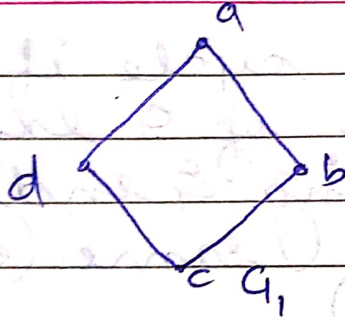 a
d b
c G₁